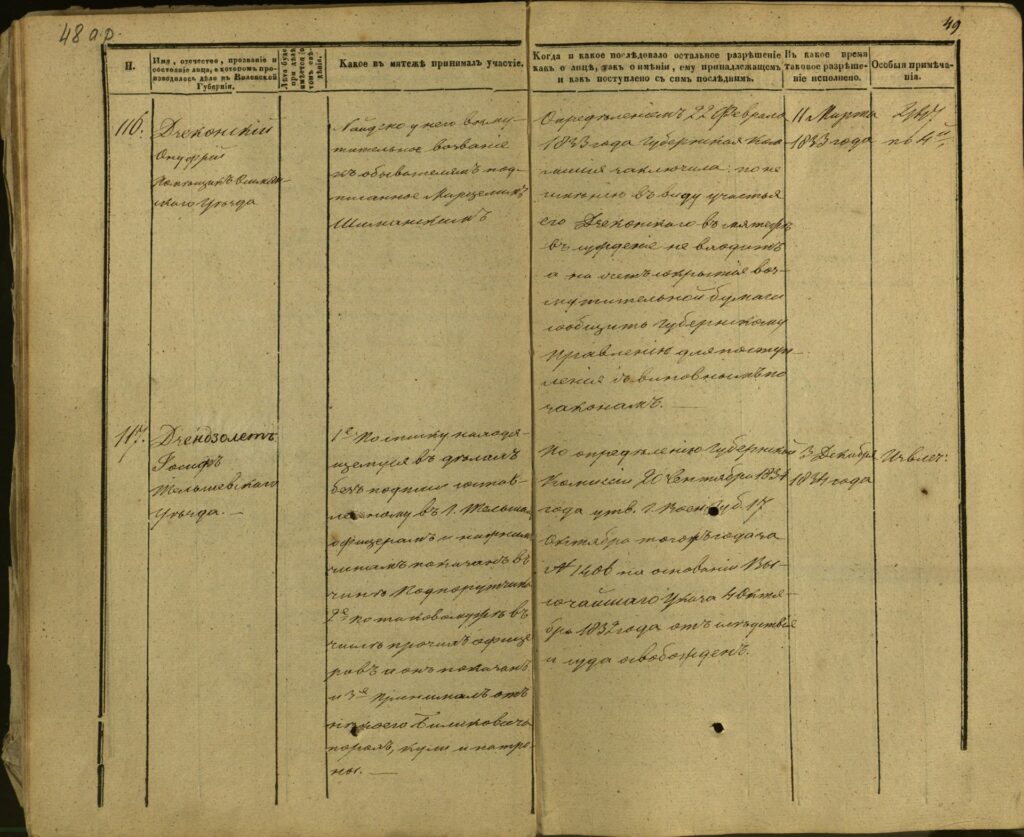 48 а.р.
49
Н.
Имя, отчество, прозваніе и
состояніе лица, о котором про-
изводилось дѣло въ Виленской
Губерніи.
Какое въ мятежѣ принималъ участіе.
Когда и какое послѣдовало остальное разрѣшеніе
какъ о лицѣ, такъ о имѣніи, ему принадлежащемъ
и какъ поступлено съ симъ послѣднимъ.
Въ какое время
таковое разрѣше-
ніе исполнено.
Особыя примѣча-
нія.
116.
Дзеконскій
Онуфрій
Помѣщикъ
Уѣзда
Найдено у него возму-
тительное воззваніе
къ обывателямъ под-
писанное Марцеліемъ
Шиманскимъ
Опредѣленіемъ 22 Февраля
1833 года Губернская Ком-
мисія заключила: по не
имѣнію въ виду участья
его Дзеконскаго въ мятежѣ
въ сужденіе не входить
а на счетъ сокрытія воз-
мутительной бумаги
сообщить Губернскому
Правленію для поступ-
ленія съ виновнымъ по
законамъ. —
11 Марта
1833 года
117.
Дзендзолетъ
Іосифъ
Тельшевскаго
Уѣзда. —
1е По списку находя-
щемуся въ дѣлахъ
безъ подписи состав-
ленному въ г. Тельшахъ
офицерамъ и нижнимъ
чинамъ показанъ въ
чинѣ Подпоручика
2е По таковому же въ
числѣ прочихъ офице
ровъ и онъ показанъ
и 3е Принималъ отъ
нѣкоего Билевича
порохъ, пули и патро-
ны. —
По опредѣленію Губернской
Комисіи 20 Сентября 1834
года утв. г. Воен. Губ. 17
Октября того жъ года за
№ 1406 на основаніи Вы-
сочайшаго Указа 4 Октя-
бря 1832 года отъ слѣдствія
и суда освобожденъ.
3 Декабря
1834 года
Извлеч: